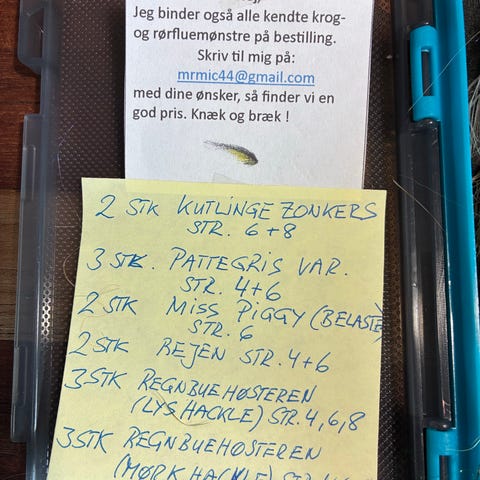 Jeg binder også alle kendte krog-
og rørfluemønstre på bestilling.
Skriv til mig på:
mrmic44@gmail.com
med dine ønsker, så finder vi en
god pris. Knæk og bræk !
2 STK KUTLINGE ZONKERS
STR. 6+8
3 STK. PATTEGRIS VAR.
STR. 4+6
2 STK MISS PIGGY (BELASTET)
STR. 6
2 STK REJEN STR. 4+6
3 STK REGNBUEHØSTEREN
(LYS HACKLE) STR. 4, 6, 8
3 STK REGNBUEHØSTEREN
(MØRK HACKLE) STR